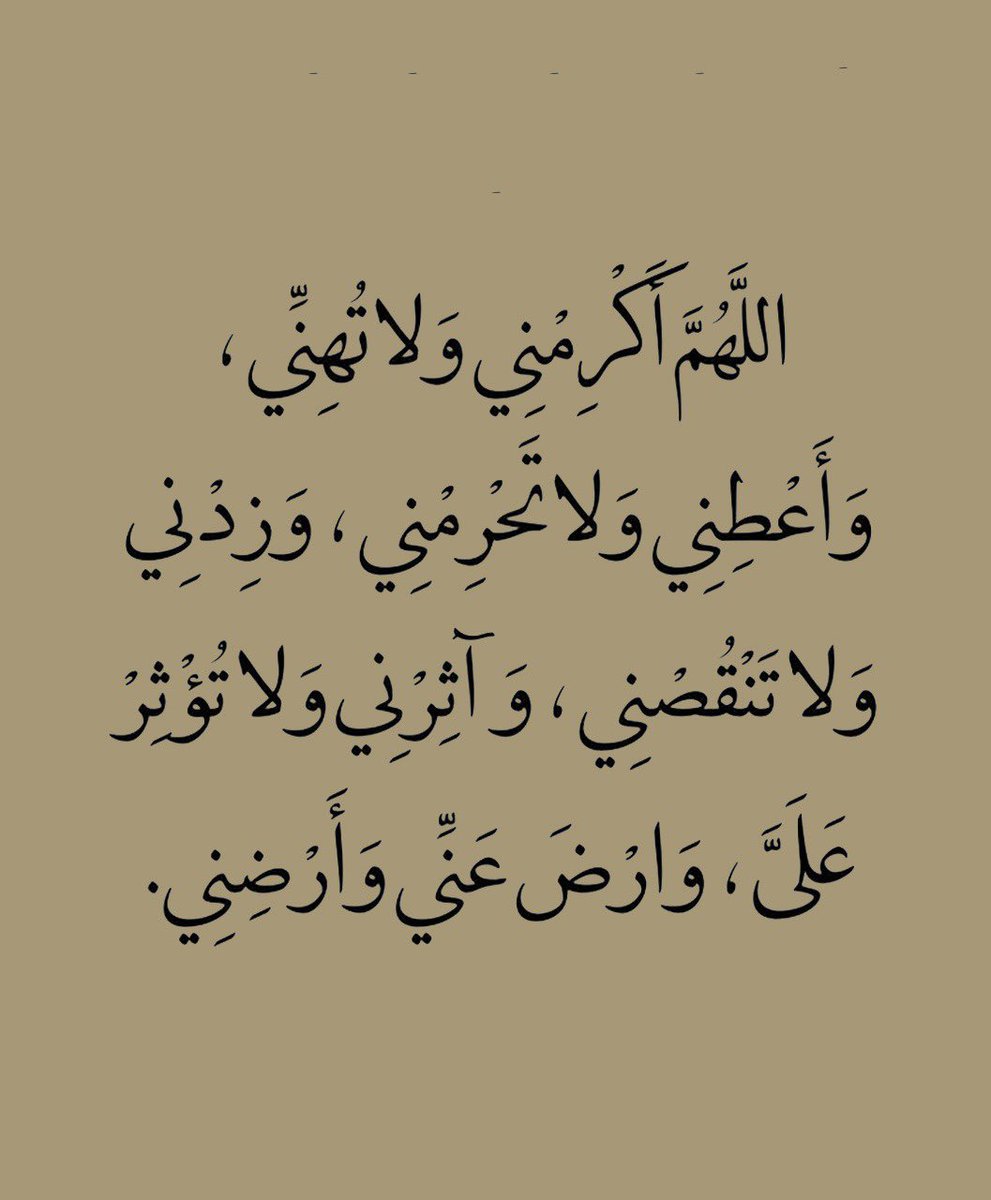 اللَّهُمَّ أَكْرِمْنِي وَلا تُهِنِّي ،
وَأَعْطِنِي وَلا تَحْرِمْنِي ، وَزِدْنِي
وَلا تَنْقُصْنِي ، وَآثِرْنِي وَلا تُؤْثِرْ
عَلَىَّ ، وَارْضَ عَنِّي وَأَرْضِنِي .